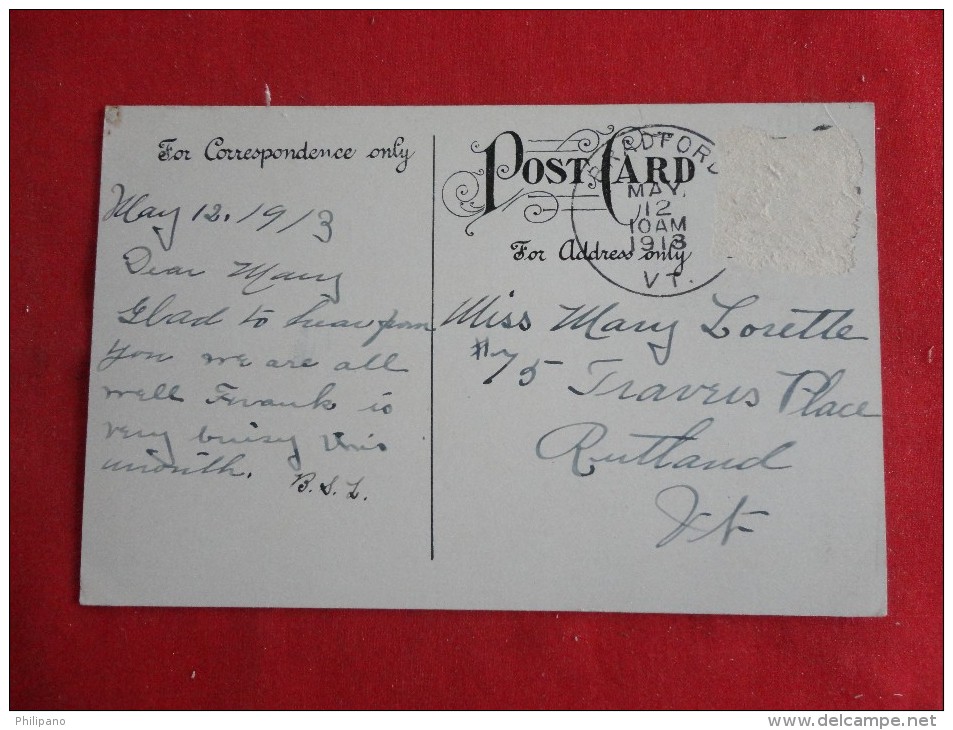 For Correspondence only
May 12. 1913
Dear Mary
Glad to hear from
you we are all
well Frank is
very buisy this
month.
B. S. L.
POST CARD
For Address only
BRADFORD
MAY.
12
10AM
1913
VT.
Miss Mary Lorette
#75 Travers Place
Rutland
Vt
Philipano
www.delcampe.net